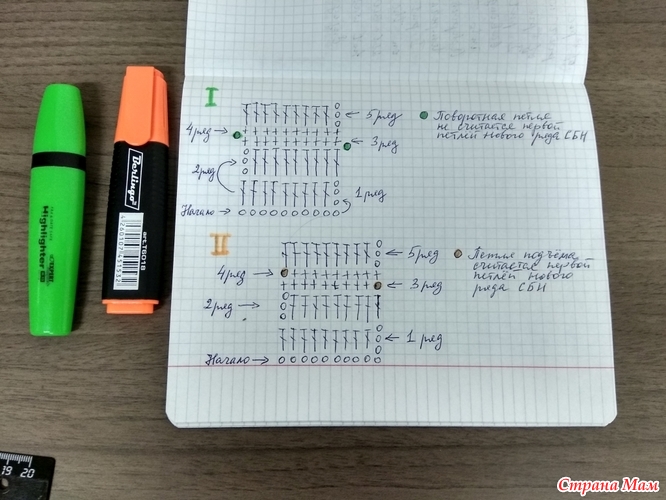 I
5 ряд
Поворотная петля
не считается первой
петлей нового ряда СБН
4 ряд
3 ряд
2 ряд
1 ряд
Начало
II
5 ряд
Петля подъёма
считается первой
петлей нового
ряда СБН
4 ряд
3 ряд
2 ряд
1 ряд
Начало
Highlighter
Berlingo
art.T6018
19 20
Страна Мам